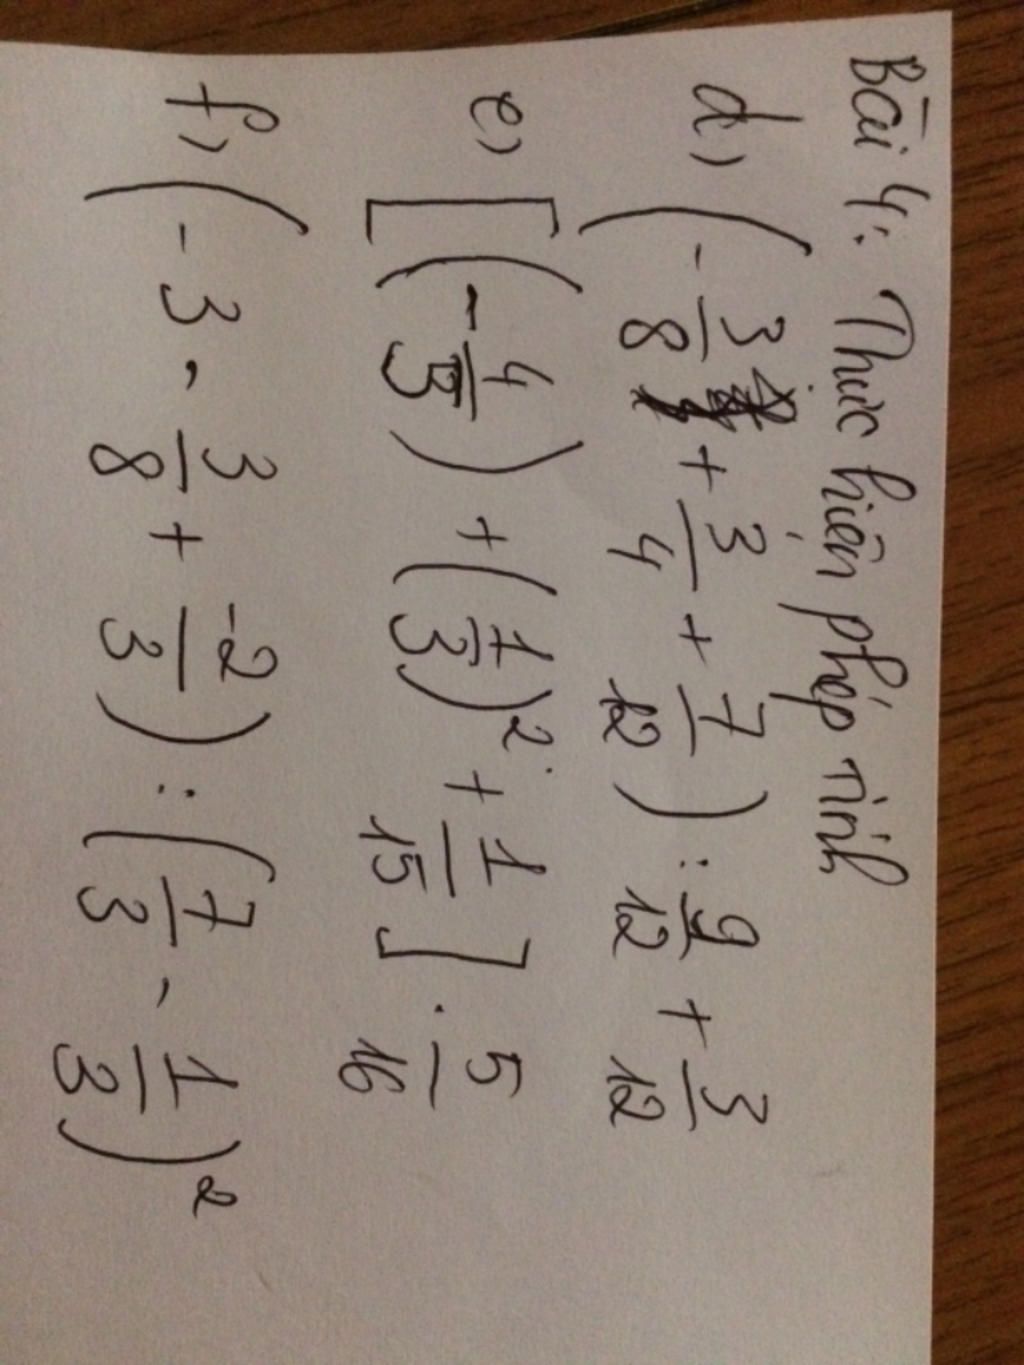 Bài 4: Thực hiện phép tính
d) (-3/8 + 3/4 + 7/12) : 9/12 + 3/12
e) [(-4/5) + (1/3)² + 1/15] . 5/16
f) (-3 . 3/8 + -2/3) : (7/3 - 1/3)²